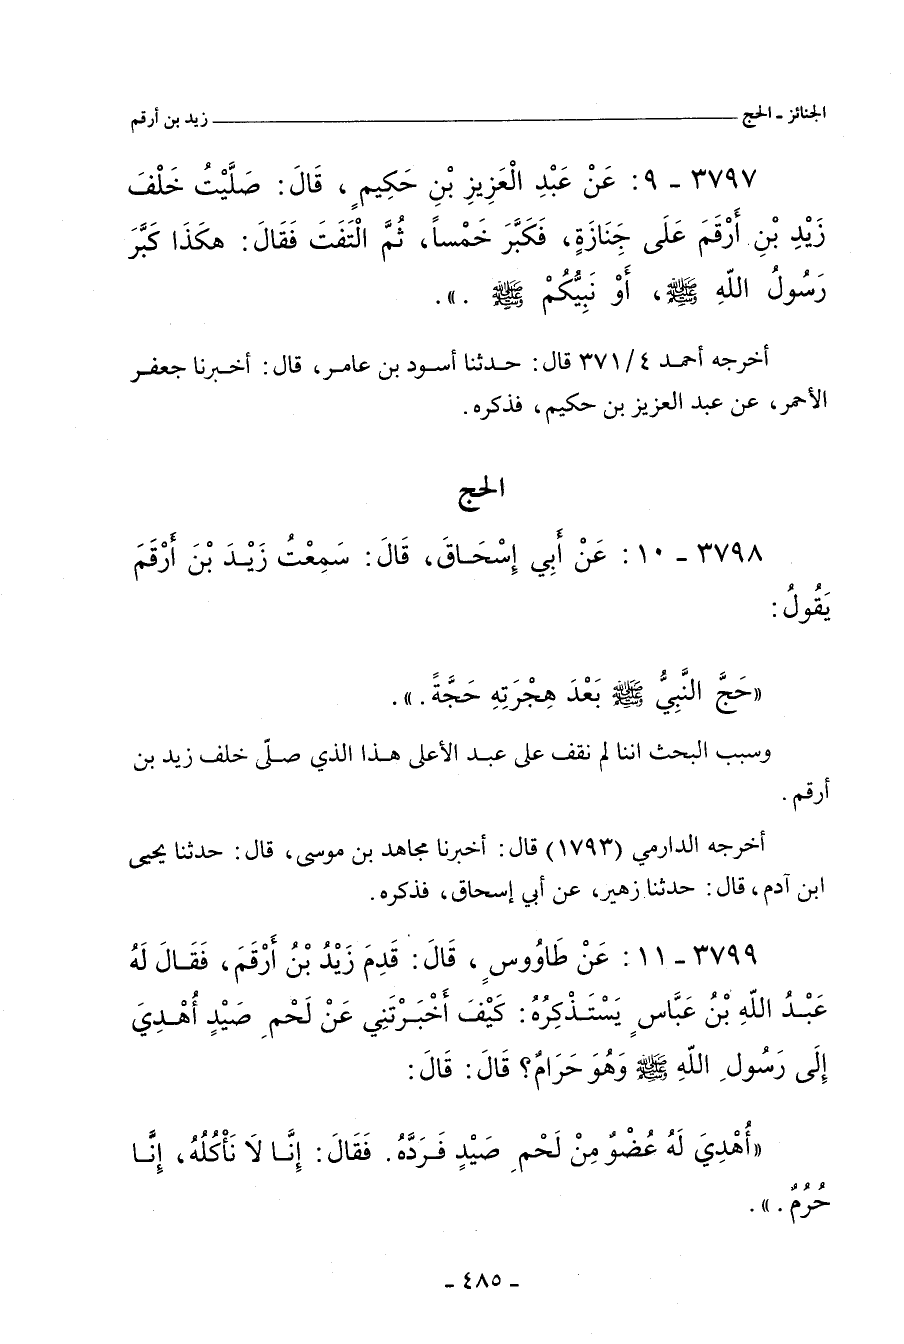 الجنائز ـ الحج ــــــــــــــــــــــــــــــــــــــ زيد بن أرقم
٣٧٩٧ ـ ٩ : عَنْ عَبْدِ الْعَزِيزِ بْنِ حَكِيمٍ ، قَالَ : صَلَّيْتُ خَلْفَ
زَيْدِ بْنِ أَرْقَمَ عَلَى جَنَازَةٍ ، فَكَبَّرَ خَمْساً ، ثُمَّ الْتَفَتَ فَقَالَ : هكَذَا كَبَّرَ
رَسُولُ اللّهِ ﷺ ، أَوْ نَبِيُّكُمْ ﷺ . » .
أخرجه أحمد ٤ / ٣٧١ قال : حدثنا أسود بن عامر ، قال : أخبرنا جعفر
الأحمر ، عن عبد العزيز بن حكيم ، فذكره .
الحج
٣٧٩٨ ـ ١٠ : عَنْ أَبِي إِسْحَاقَ ، قَالَ : سَمِعْتُ زَيْدَ بْنَ أَرْقَمَ
يَقُولُ :
« حَجَّ النَّبِيُّ ﷺ بَعْدَ هِجْرَتِهِ حَجَّةً . » .
وسبب البحث اننا لم نقف على عبد الأعلى هذا الذي صلّى خلف زيد بن
أرقم .
أخرجه الدارمي (١٧٩٣) قال : أخبرنا مجاهد بن موسى ، قال : حدثنا يحيى
ابن آدم ، قال : حدثنا زهير ، عن أبي إسحاق ، فذكره .
٣٧٩٩ ـ ١١ : عَنْ طَاوُوسٍ ، قَالَ : قَدِمَ زَيْدُ بْنُ أَرْقَمَ ، فَقَالَ لَهُ
عَبْدُ اللّهِ بْنُ عَبَّاسٍ يَسْتَذْكِرُهُ : كَيْفَ أَخْبَرْتَنِي عَنْ لَحْمِ صَيْدٍ أُهْدِيَ
إِلَى رَسُولِ اللّهِ ﷺ وَهُوَ حَرَامٌ ؟ قَالَ : قَالَ :
« أُهْدِيَ لَهُ عُضْوٌ مِنْ لَحْمِ صَيْدٍ فَرَدَّهُ . فَقَالَ : إِنَّا لَا نَأْكُلُهُ ، إِنَّا
حُرُمٌ . » .
ـ ٤٨٥ ـ